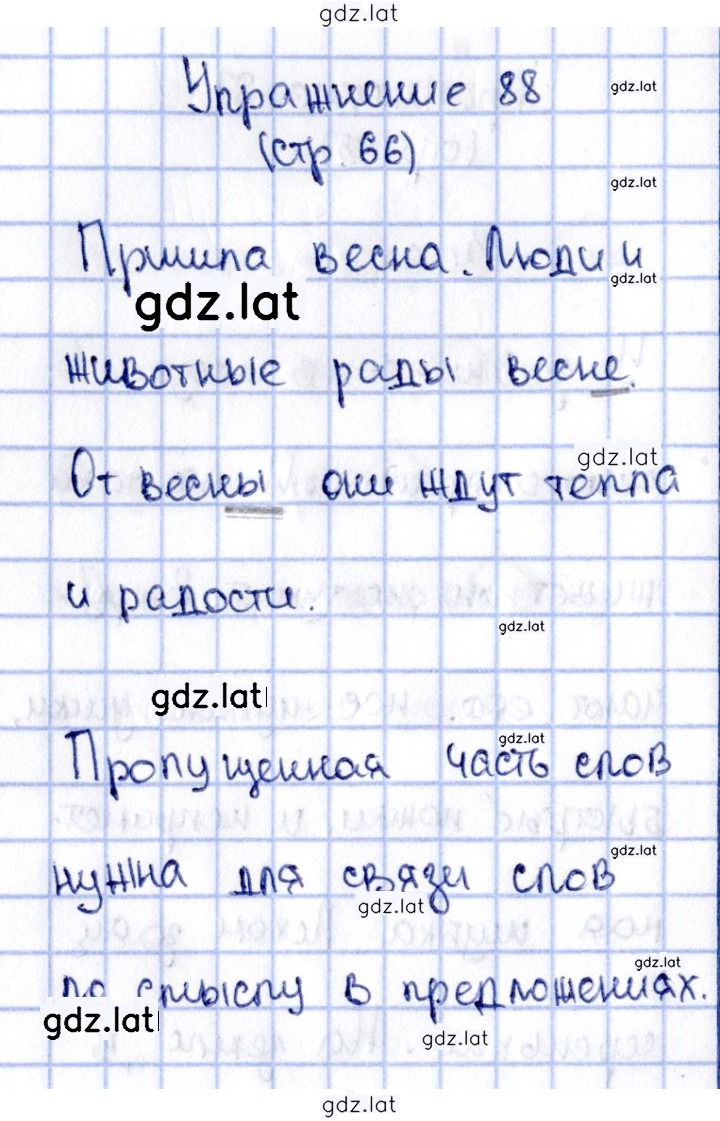 gdz.lat
Упражнение 88
gdz.lat
(стр. 66)
gdz.lat
Пришла весна. Люди и
gdz.lat
gdz.lat
животные рады весне.
gdz.lat
От весны они ждут тепла
и радости.
gdz.lat
gdz.lat
gdz.lat
Пропущенная часть слов
gdz.lat
нужна для связи слов
gdz.lat
gdz.lat
по смыслу в предложениях.
gdz.lat
gdz.lat
gdz.lat